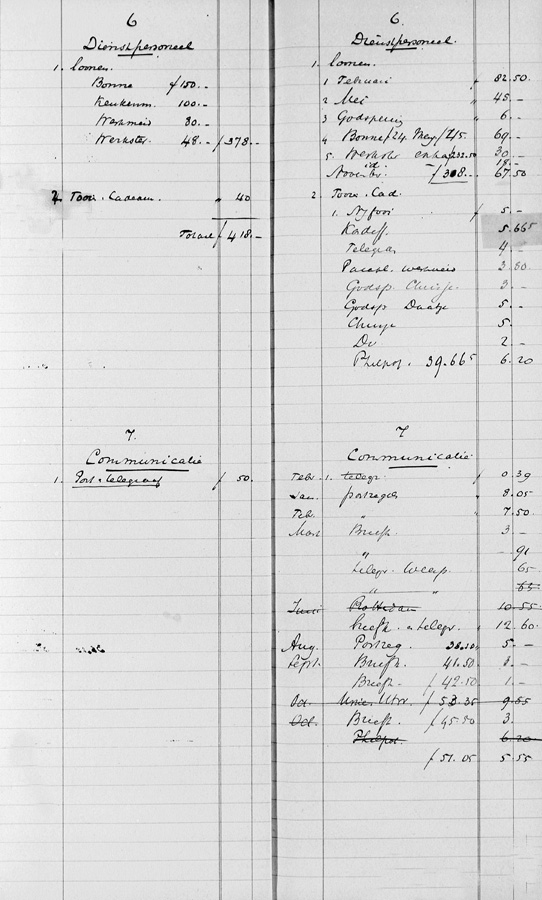 6
Dienstpersoneel
1. loonen.
Bonne f 150.-
Keukenm. 100.-
Werkmeid 80.-
Werkster 48.- f 378.-
2 Toors. Cadeaux. " 40
Totaal f 418.-
7.
Communicatie
1. Post & telegraaf f 50.
6.
Dienstpersoneel.
1. loonen.
1 Februari f 82.50
2 Mei " 45.-
3 Godspenning " 6.-
4 Bonne 24 May f 75 69.-
5. Werkster 232.50 30.-
id. 18.-
November f 308.- 67.50
2. Toors. Cad.
1. Nyfooi f 5.-
5.665
Telegr. 4.-
werkmeid 3.80
Godsp. 3.-
Godsp. Daatje 5.-
5.
Do 2.-
Philpos. 39.665 6.20
7
Communicatie
Febr. 1. telegr. f 0.39
Jan. portzegels " 8.05
Feb. " " 7.50
Mart Briefk. 3.-
" 91
telegr. Weesp. 65
" " 65
Juni Rotterdam 10.55
briefk. & telegr. " 12.60
Aug. Postzeg. 38.10 5.-
Sept. Briefk. 41.50 3.-
Briefk. f 42.50 1.-
Oct. Univ. Utr. f 53.35 9.85
Oct. Briefk. f 45.50 3.
Philpos. 6.20
f 51.05 5.55